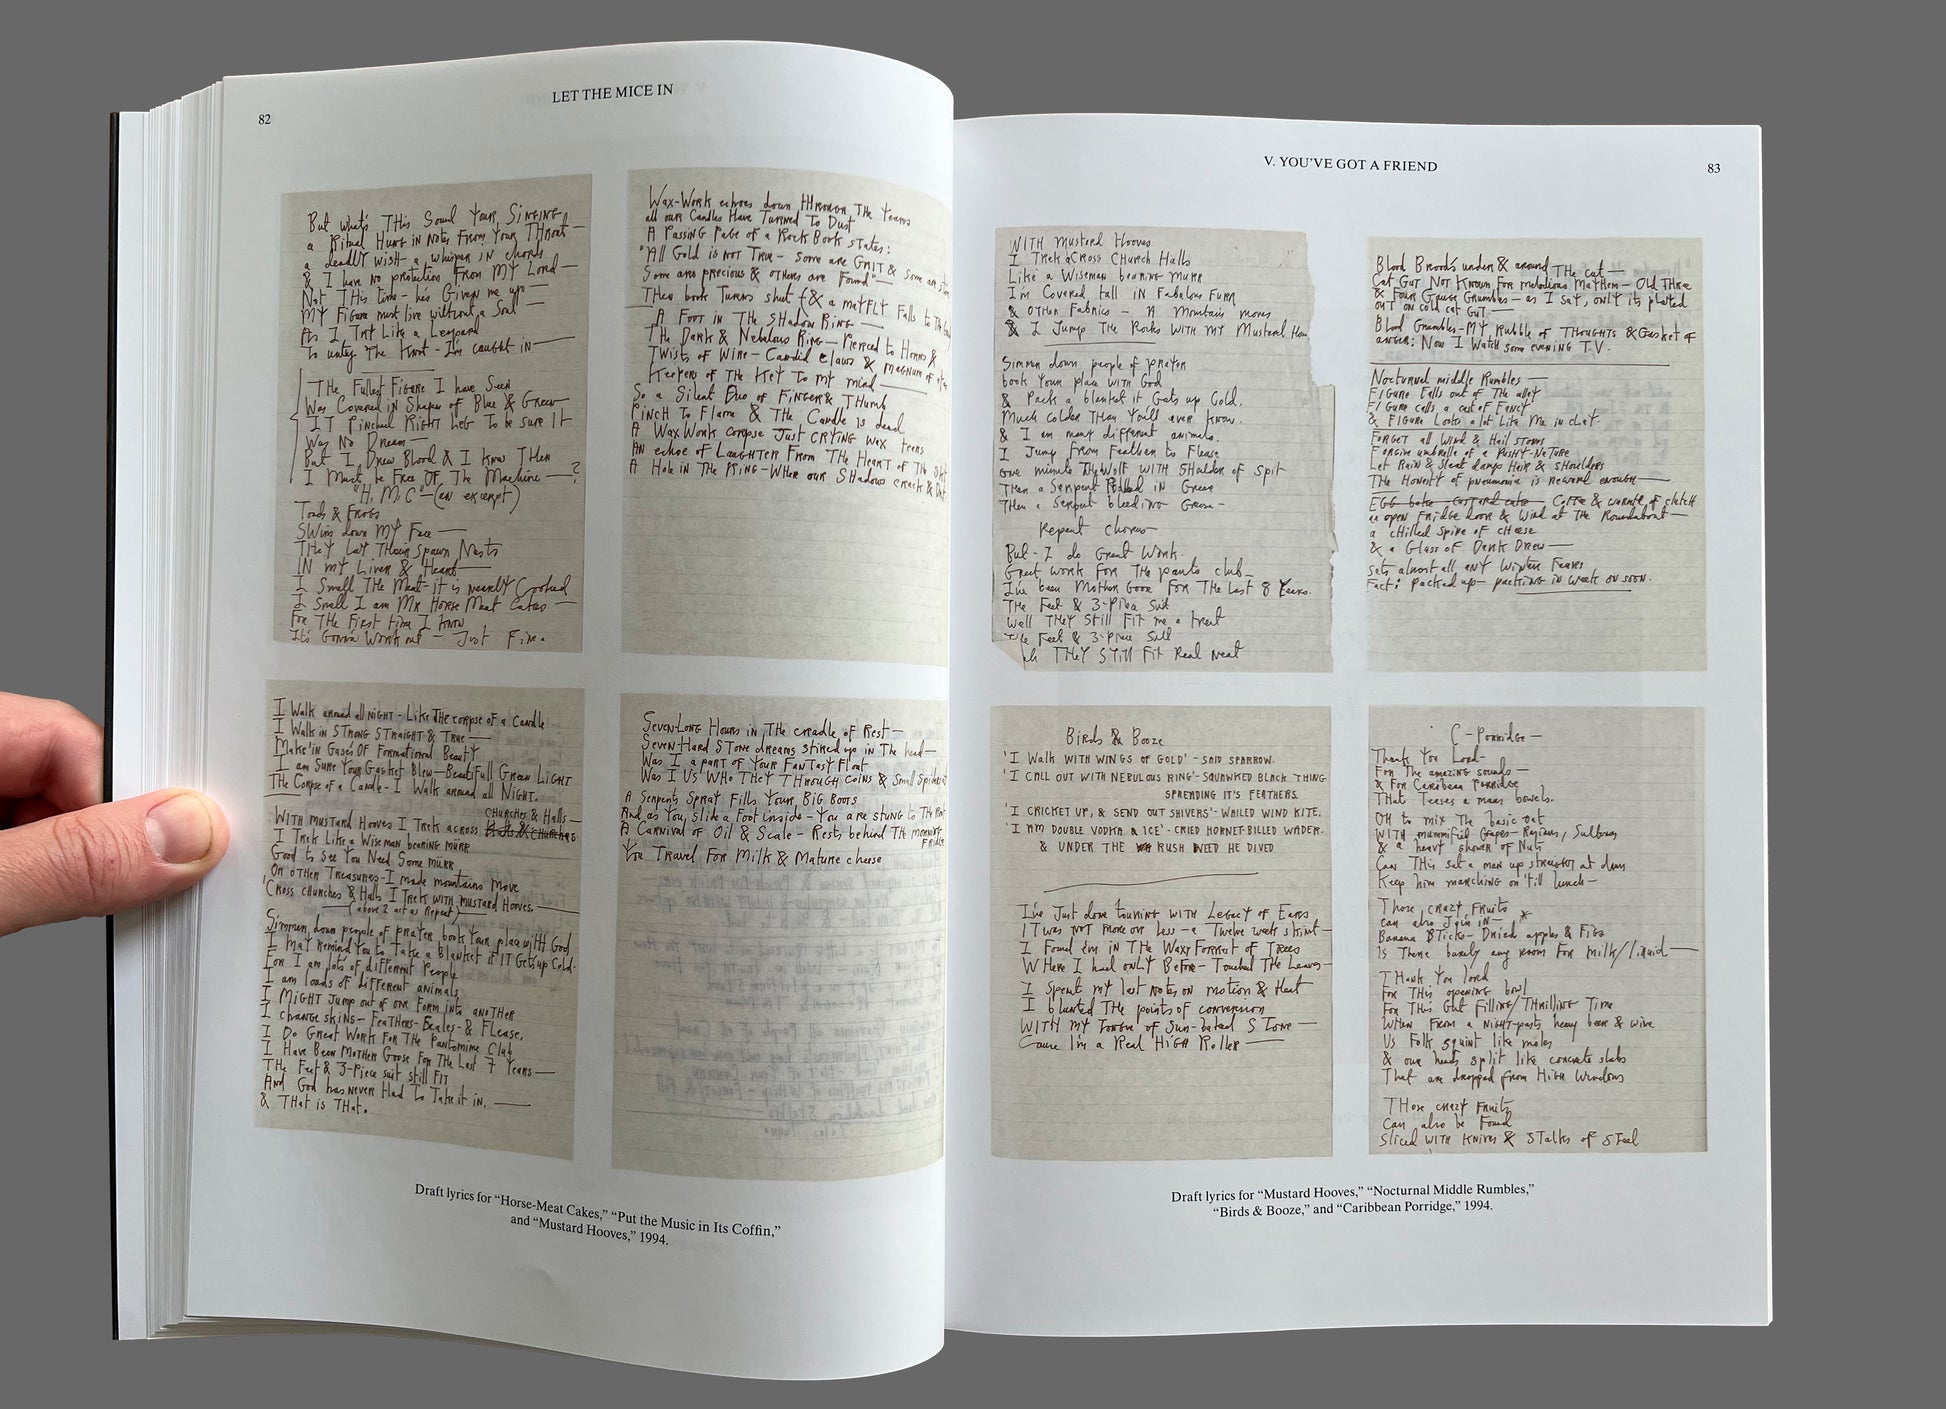 82
LET THE MICE IN
But what's THis Sound Your SINGING
a Ritual Hung in Notes From Your THroat —
a deadly wish — a whisper IN chords
& I have no protection From MY Lord —
Not THis time — has Given me up —
MY Figure must live without a Soul
As I TRY Like a Leopard
To untey The Knot — I'm caught in —
THe Fullest Figure I have Seen
Was Covered in Shapes of Blue & Green
IT Pinched RIGHT Leg To be sure IT
Was No Dream —
But I Drew Blood & I Knew THen
I Must be Free OF The Machine — ?
"H.M.C" — (an excerpt)
Toads & Frogs
SWim down MY Face —
THeY LaY Their Spawn Nests
IN my Liver & Heart —
I Smell THe Meat — it is nearlY Cooked
I Smell I am MR Horse Meat Cakes —
For THe First time I know
It's Gonna Work out — Just Fine.
Wax-Work echoes down tHrough THe Years
all our Candles Have Turned To Dust
A Passing Page of a Rock Book states:
"All Gold is not True — Some are GRIT & Some are
Some are precious & others are Found" —
THen book Turns shut & a mayFLY Falls to The
A Foot in THe SHadow RING —
THe Dark & Nebulous Ring — Pierced to Horns &
Twists of Wire — Candid claws & magnum of
Keepers of THe KeY To mY mind —
So a Silent Duo of FinGer & THumb
Pinch To Flame & THe Candle is dead
A Wax Work corpse Just CRYING wax tears
AN echoe of Laughter From THe Heart of THe
A Hole in THe RING — WHen our SHadows crack &
I Walk around all NIGHT — Like THe corpse of a Candle
I Walk in STRONG STRAIGHT & True —
Make'in Gases OF Formational Beauty
I am Sure Your Gasket Blew — Beautifull Green LIGHT
THe Corpse of a Candle — I Walk around all NIGHT.
CHurches & Halls —
WITH mustard Hooves I Trek across Halls & CHurches
I Trek Like a Wiseman bearing mürr
Good to see You Need Some mürr
Or oTHer Treasures — I made mountains move
'Cross churches & Halls I Trek WITH mustard Hooves. —
(above 2 act as Repeat)
Simmer down people of praYer book Your place wiTH God
I maY Remind You to Take a blanket if IT Gets up Cold.
For I am lots of different People
I am loads of different animals
I MIGHT Jump out of one Form into anoTHer
I change skins — Feathers — Scales — & FLease,
I Do Great Work For THe Pantomime Club
I Have Been MoTHer Goose For THe Last 7 Years —
THe Feet & 3-Piece suit still FIT
And God has never Had To Take it in. —
& THat is THat.
Seven-Long Hours in THe creadle of Rest —
Seven-Hard STone dreams stired up in The head —
Was I a part of Your FanTasY Float
Was I Us WHo THeY THrough coins & Small Spiders at
A Serpents Spray Fills Your BIG Boots
And as You slide a Foot inside — You are stung to THe
A Carnival of Oil & Scale — Rests behind THe morning
Fridge
You Travel For Milk & Mature cheese
Draft lyrics for “Horse-Meat Cakes,” “Put the Music in Its Coffin,”
and “Mustard Hooves,” 1994.
V. YOU’VE GOT A FRIEND
83
WITH Mustard Hooves
I Trek aCross CHurch Halls
Like a Wiseman bearing murr
I'm Covered tall IN Fabulous Furr
& OTHer Fabrics — A Mountain moves
& I Jump THe Rocks WITH mY Mustard
Simmer down people of praYer
book Your place WITH God
& Pack a blanket it Gets up Cold.
Much colder THan You'll ever know.
& I am many different animals.
I Jump From Feathers to Flease
One minute WITH SHolder of Spit
THen a Serpent in Green
THen a Serpent bleeding Green —
Repeat Chorus —
But — I do Great Work.
Great work For THe panto club —
I've been MoTHer Goose For THe Last 8 Years.
THe Feet & 3-Piece Suit
Well THeY Still FiT me a treat
THe Feet & 3-Piece Suit
THeY Still Fit Real Neat
Blood Broods under & around THe cat —
Cat Gut Not Known For melodious MaYHem — Old THree
& Four Gauge Grumbles — as I say, only its plated
out on cold cat Gut —
Blood Grumbles — MY Rubble of THouGHts & Gasket of
anger: Now I Watch some evening T.V.
Nocturnal middle Rumbles —
FIGure Falls out of THe alley
FIGure calls a cast of Fancy
& FIGure Looks a lot Like Me in claY.
Forget all Wind & Hail storms
Forgive umbrella of a PushY-Nature
Let Rain & Sleat damp Hair & SHoulders
THe Honesty of pneumonia is reward enough —
EGG bake custard cake — Coffe & warmth of clutch
an open Fridge door & Wind at THe Roundabout —
a cHilled Spine of cHeese
& a Glass of Dark Drew —
Sets almost all anY WinTer Fears
Fact: Packed up — packing in week on soon.
Birds & Booze
'I Walk WITH WINGS OF GOLD' — SAID SPARROW.
'I CALL OUT WITH NEBULOUS RING' — SQUAWKED BLACK THING
SPREADING IT'S FEATHERS.
'I CRICKET UP, & SEND OUT SHIVERS' — WAILED WIND KITE.
'I AM DOUBLE VODKA & ICE' — CRIED HORNET-BILLED WADER.
& UNDER THE RUSH WEED HE DIVED
I've Just done touring WITH Legacy of Ears
IT Was NOT more or Less — a Twelve week stint —
I Found 'em in THe Waxy Forrest of Trees
WHere I had onlY Before — Touched THe Leaves —
I Spent my last notes on motion & Heat
I blunted THe points of conversion
WITH mY Tongue of Sun-baked STone —
Cause I'm a Real HIGH Roller —
C-Porridge —
THank You Lord —
For THe amazing sounds —
& For Caribean Porridge
THat Teases a mans bowels.
OH to mix THe basic oat
WITH mummified Grapes — Raisins, Sultanas
& a heavy shower of Nuts
Can THis set a man up straight at dawn
Keep him marching on 'till lunch —
THose crazY Fruits
can also Join in — *
Banana Sticks — Dried apples & Figs
Is THere barely any room For milk/liquid —
THank You lord
For THis opening bowl
For THis Gut Filling/THrilling Time
When From a NIGHT-pasts heavy beer & wine
Us Folk squint like moles
& our heads split like concrete slabs
THat are dropped from HIGH Windows
THose crazY Fruits
Can also be Found
Sliced WITH Knives & STalks of STeel
Draft lyrics for “Mustard Hooves,” “Nocturnal Middle Rumbles,”
“Birds & Booze,” and “Caribbean Porridge,” 1994.